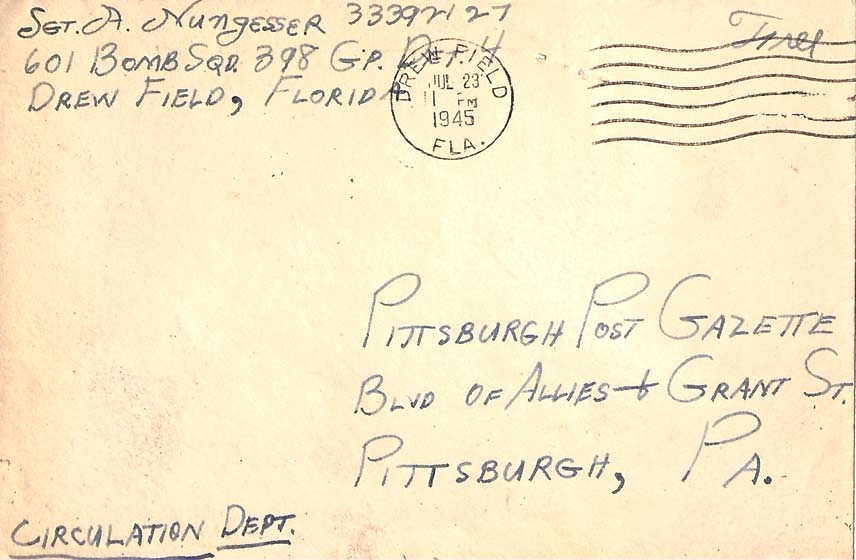 SGT. A. NUNGESSER 33392127
601 BOMB SQD. 398 GP.
DREW FIELD, FLORIDA
DREW FIELD
JUL 23
11 PM
1945
FLA.
Free
PITTSBURGH POST GAZETTE
BLVD OF ALLIES & GRANT ST.
PITTSBURGH, PA.
CIRCULATION DEPT.